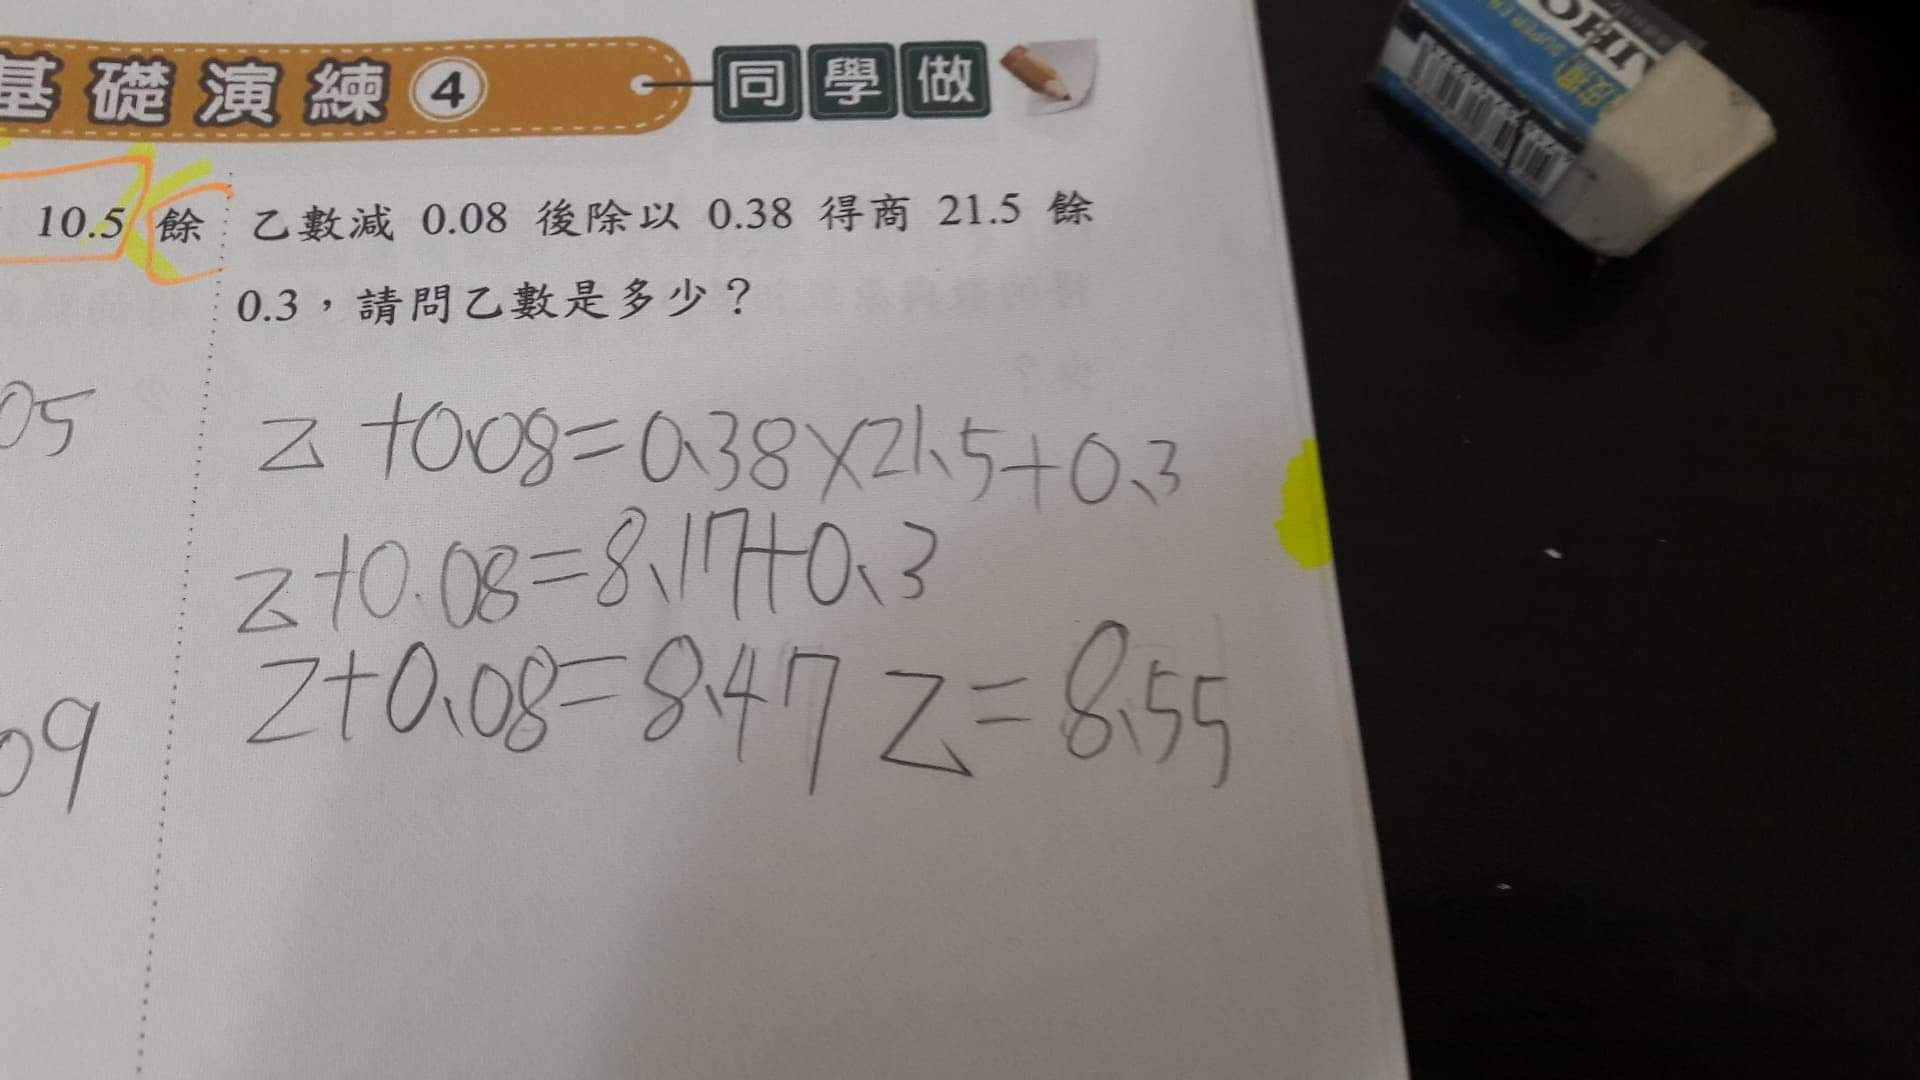 基礎演練④ 同學做
10.5 餘
乙數減 0.08 後除以 0.38 得商 21.5 餘
0.3，請問乙數是多少？
05
乙+0.08=0.38×21.5+0.3
乙+0.08=8.17+0.3
乙+0.08=8.47 乙=8.55
09